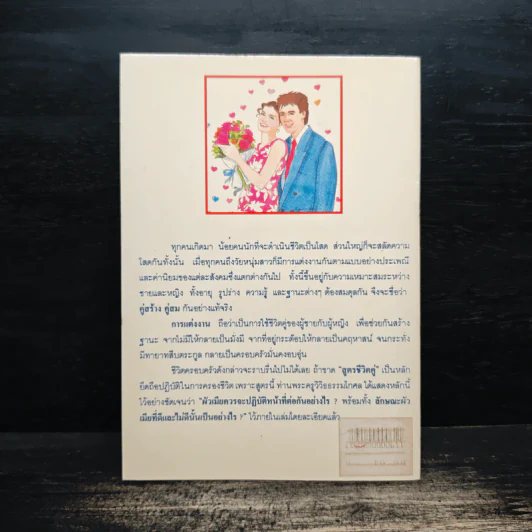 ทุกคนเกิดมา น้อยคนนักที่จะดำเนินชีวิตเป็นโสด ส่วนใหญ่ก็จะสลัดความ
โสดกันทั้งนั้น เมื่อทุกคนถึงวัยหนุ่มสาวก็มีการแต่งงานกันตามแบบอย่างประเพณี
และค่านิยมของแต่ละสังคมซึ่งแตกต่างกันไป ทั้งนี้ขึ้นอยู่กับความเหมาะสมระหว่าง
ชายและหญิง ทั้งอายุ รูปร่าง ความรู้ และฐานะต่างๆ ต้องสมดุลกัน จึงจะชื่อว่า
คู่สร้าง คู่สม กันอย่างแท้จริง
การแต่งงาน ถือว่าเป็นการใช้ชีวิตคู่ของผู้ชายกับผู้หญิง เพื่อช่วยกันสร้าง
ฐานะ จากไม่มีให้กลายเป็นมั่งมี จากที่อยู่กระต๊อบให้กลายเป็นคฤหาสน์ จนกระทั่ง
มีทายาทสืบตระกูล กลายเป็นครอบครัวมั่นคงอบอุ่น
ชีวิตครอบครัวดังกล่าวจะราบรื่นไปไม่ได้เลย ถ้าขาด "สูตรชีวิตคู่" เป็นหลัก
ยึดถือปฏิบัติในการครองชีวิต เพราะสูตรนี้ ท่านพระครูวิวิธธรรมโกศล ได้แสดงหลักนี้
ไว้อย่างชัดเจนว่า "ผัวเมียควรจะปฏิบัติหน้าที่ต่อกันอย่างไร ? พร้อมทั้ง ลักษณะผัว
เมียที่ดีและไม่ดีนั้นเป็นอย่างไร ?" ไว้ภายในเล่มโดยละเอียดแล้ว